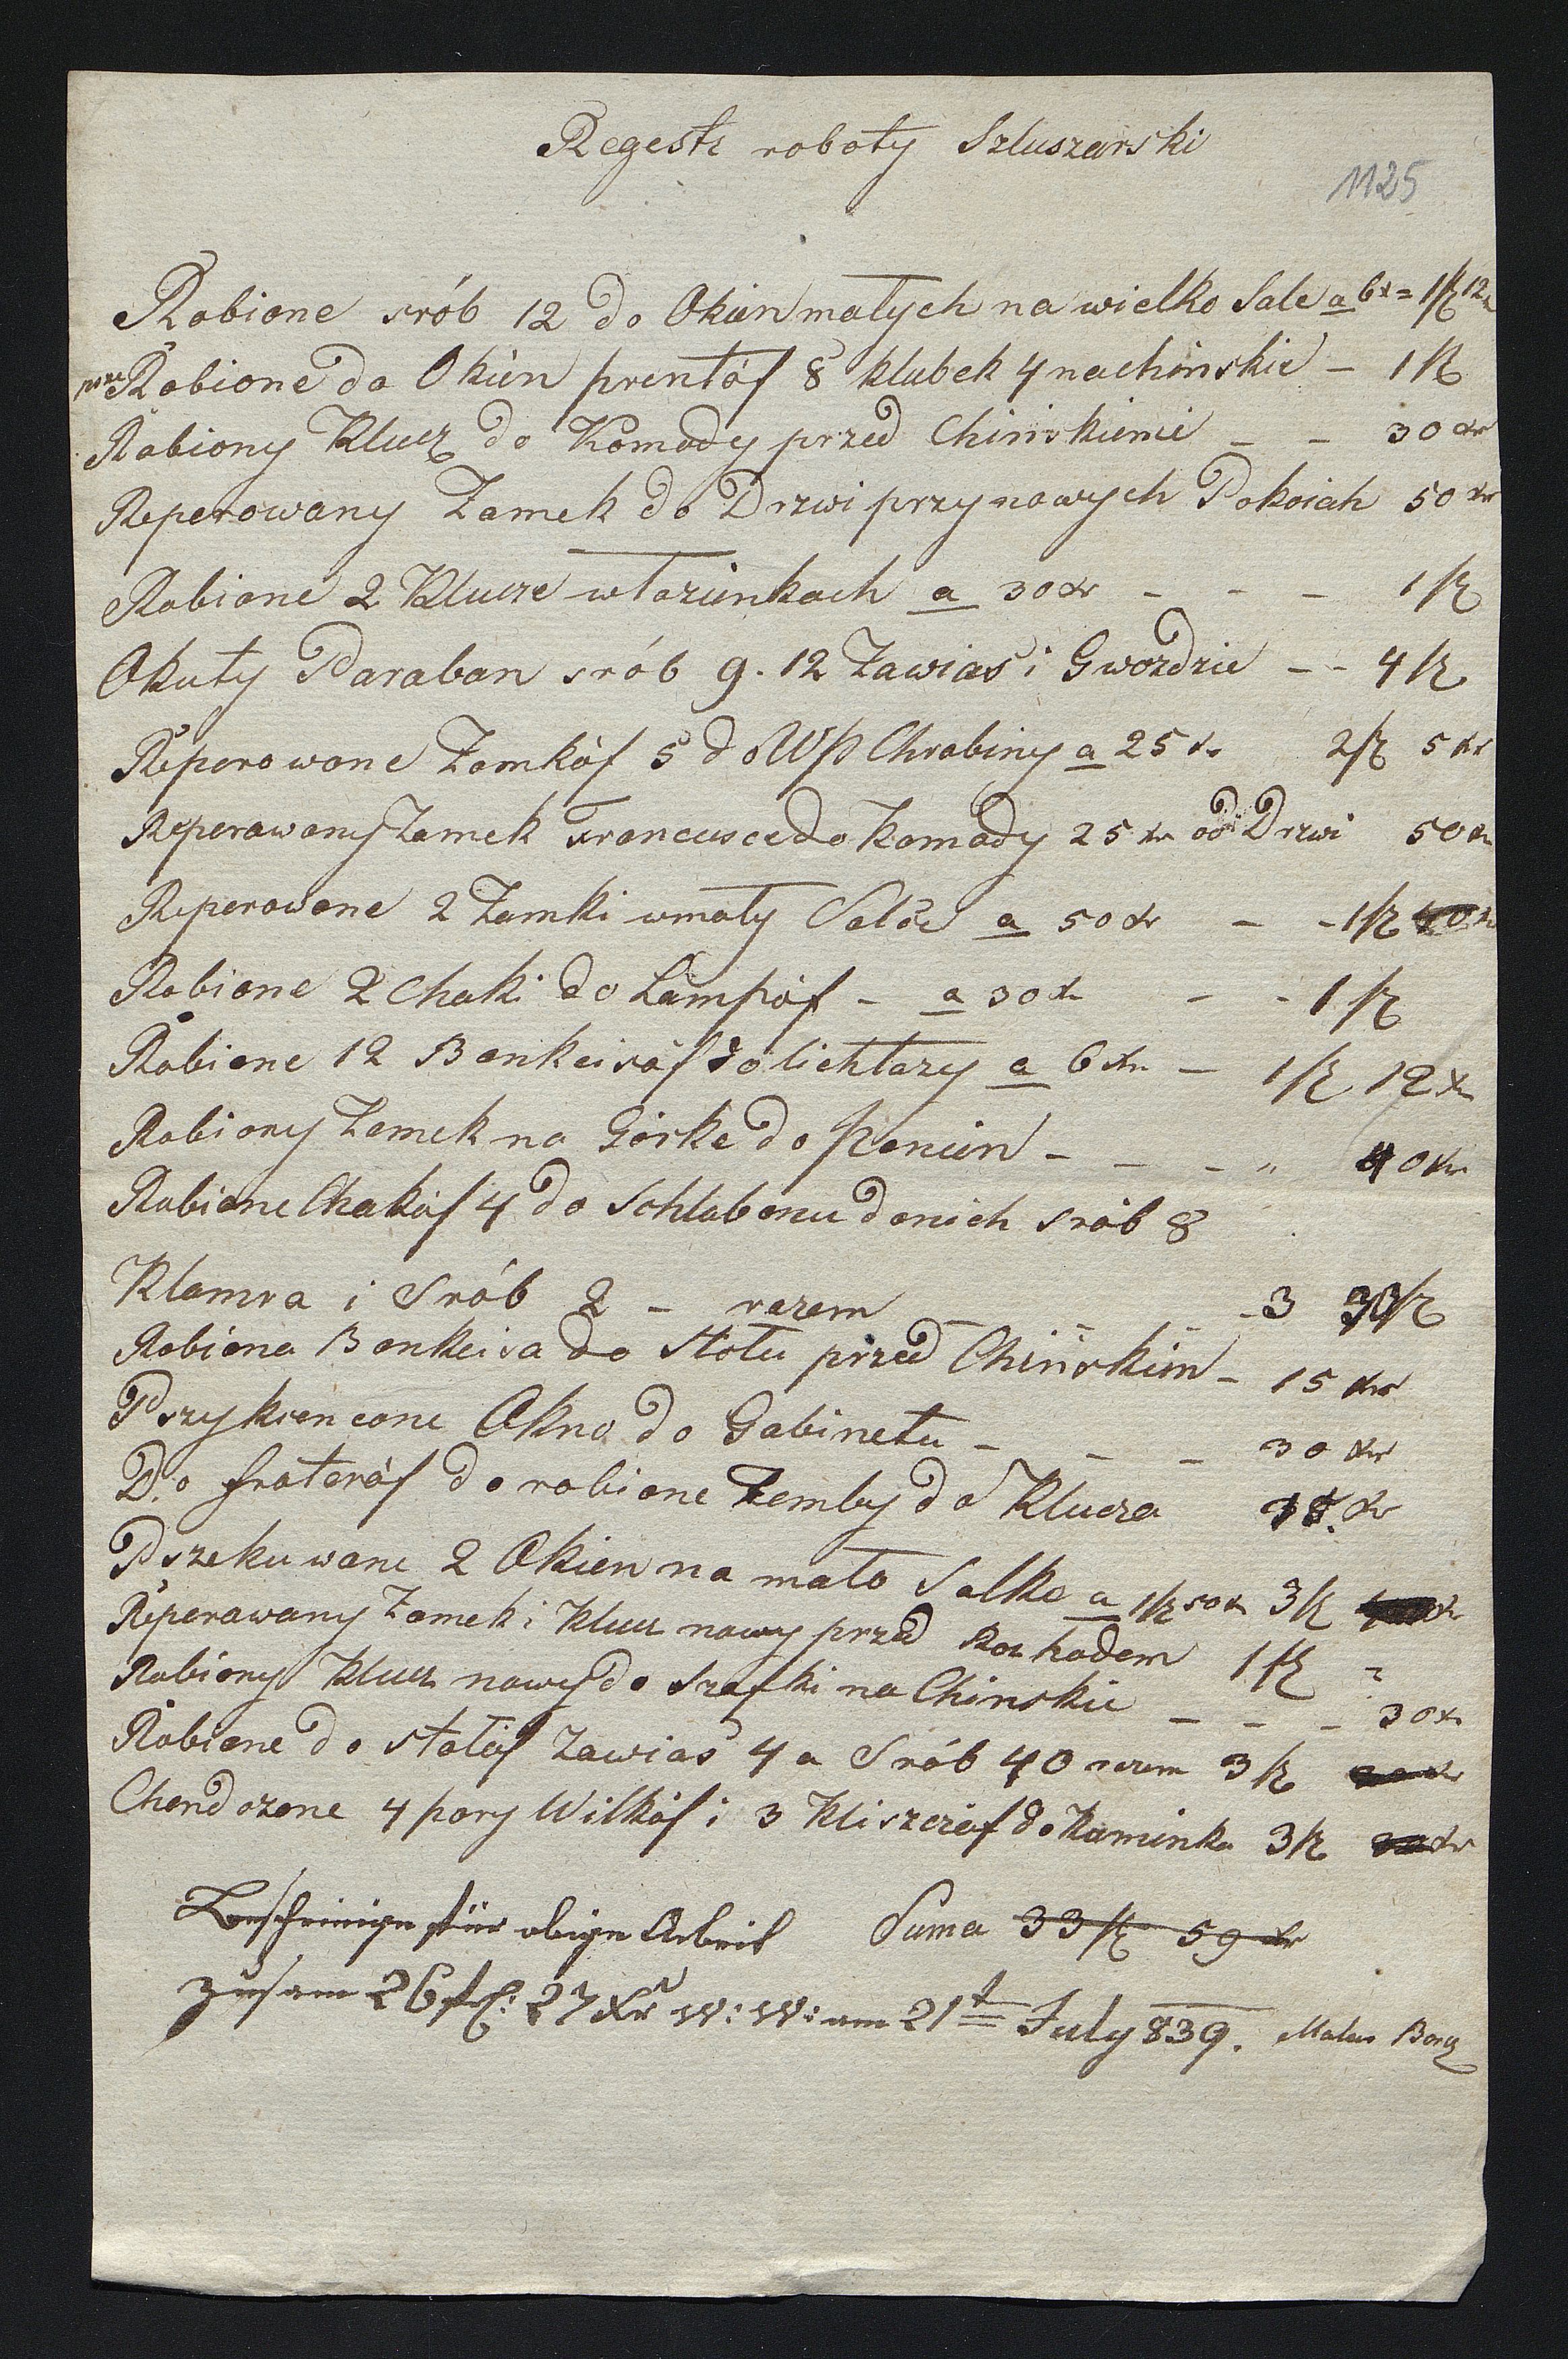 Regestr roboty Szluszarski
1125
Robione srób 12 do Okien małych na wielko Sale a 6 xr = 1 fr 12 xr
prze Robione do Okien prentóf 8 klubek 4 na chinskie – 1 fr
Robiony Klucz do Komody przed Chinskiemi – – 30 xr
Reperowany Zamek do Drzwi przy nowych Pokoiah 50 xr
Robione 2 Klucze w łaziünkach a 30 xr – – – 1 fr
Okuty Paraban srób 9. 12 Zawias i Gwozdzie – – 4 fr
Reperowane Zamkóf 5 do WP Chrabiny a 25 xr 2 fr 5 xr
Reperowany Zamek Francusce do Komody 25 xr od Drzwi 50 xr
Reperowane 2 Zamki w mały Salőe a 50 xr – – 1 fr
Robione 2 Chaki do Lampóf – a 30 xr – – 1 fr
Robione 12 Bankeisóf do lichtarzy a 6 xr – 1 fr 12 xr
Robiony Zamek na Górke do – – – „ 40 xr
Robione Chakóf 4 do Schlabonu do nich srób 8
Klamra i Srób 2 – razem – – – – 3 fr
Robiona Bankeisa do stołu przed Chińskim – 15 xr
Pszykrencone Okno do Gabinetu – – – 30 xr
Do frateróf dorobione Zemby do Klucza xr
Pszekuwane 2 Okien na mało Salke a 1 fr 50 xr 3 fr
Reperawany Zamek i Klucz nowy przed 1 fr „
Robiony Klucz nowy do Szafki na Chinskie – – – 30 xr
Robione do stolóf Zawias 4 a Srób 40 razem 3 fr
Chendozone 4 pary Wilkóf i 3 Kliszczóf do Kaminka 3 fr
Bescheinige für obige Arbeit Suma 33 fr 59 xr
zusam 26 fl: 27 xr W: W: am 21t July 839. Borg